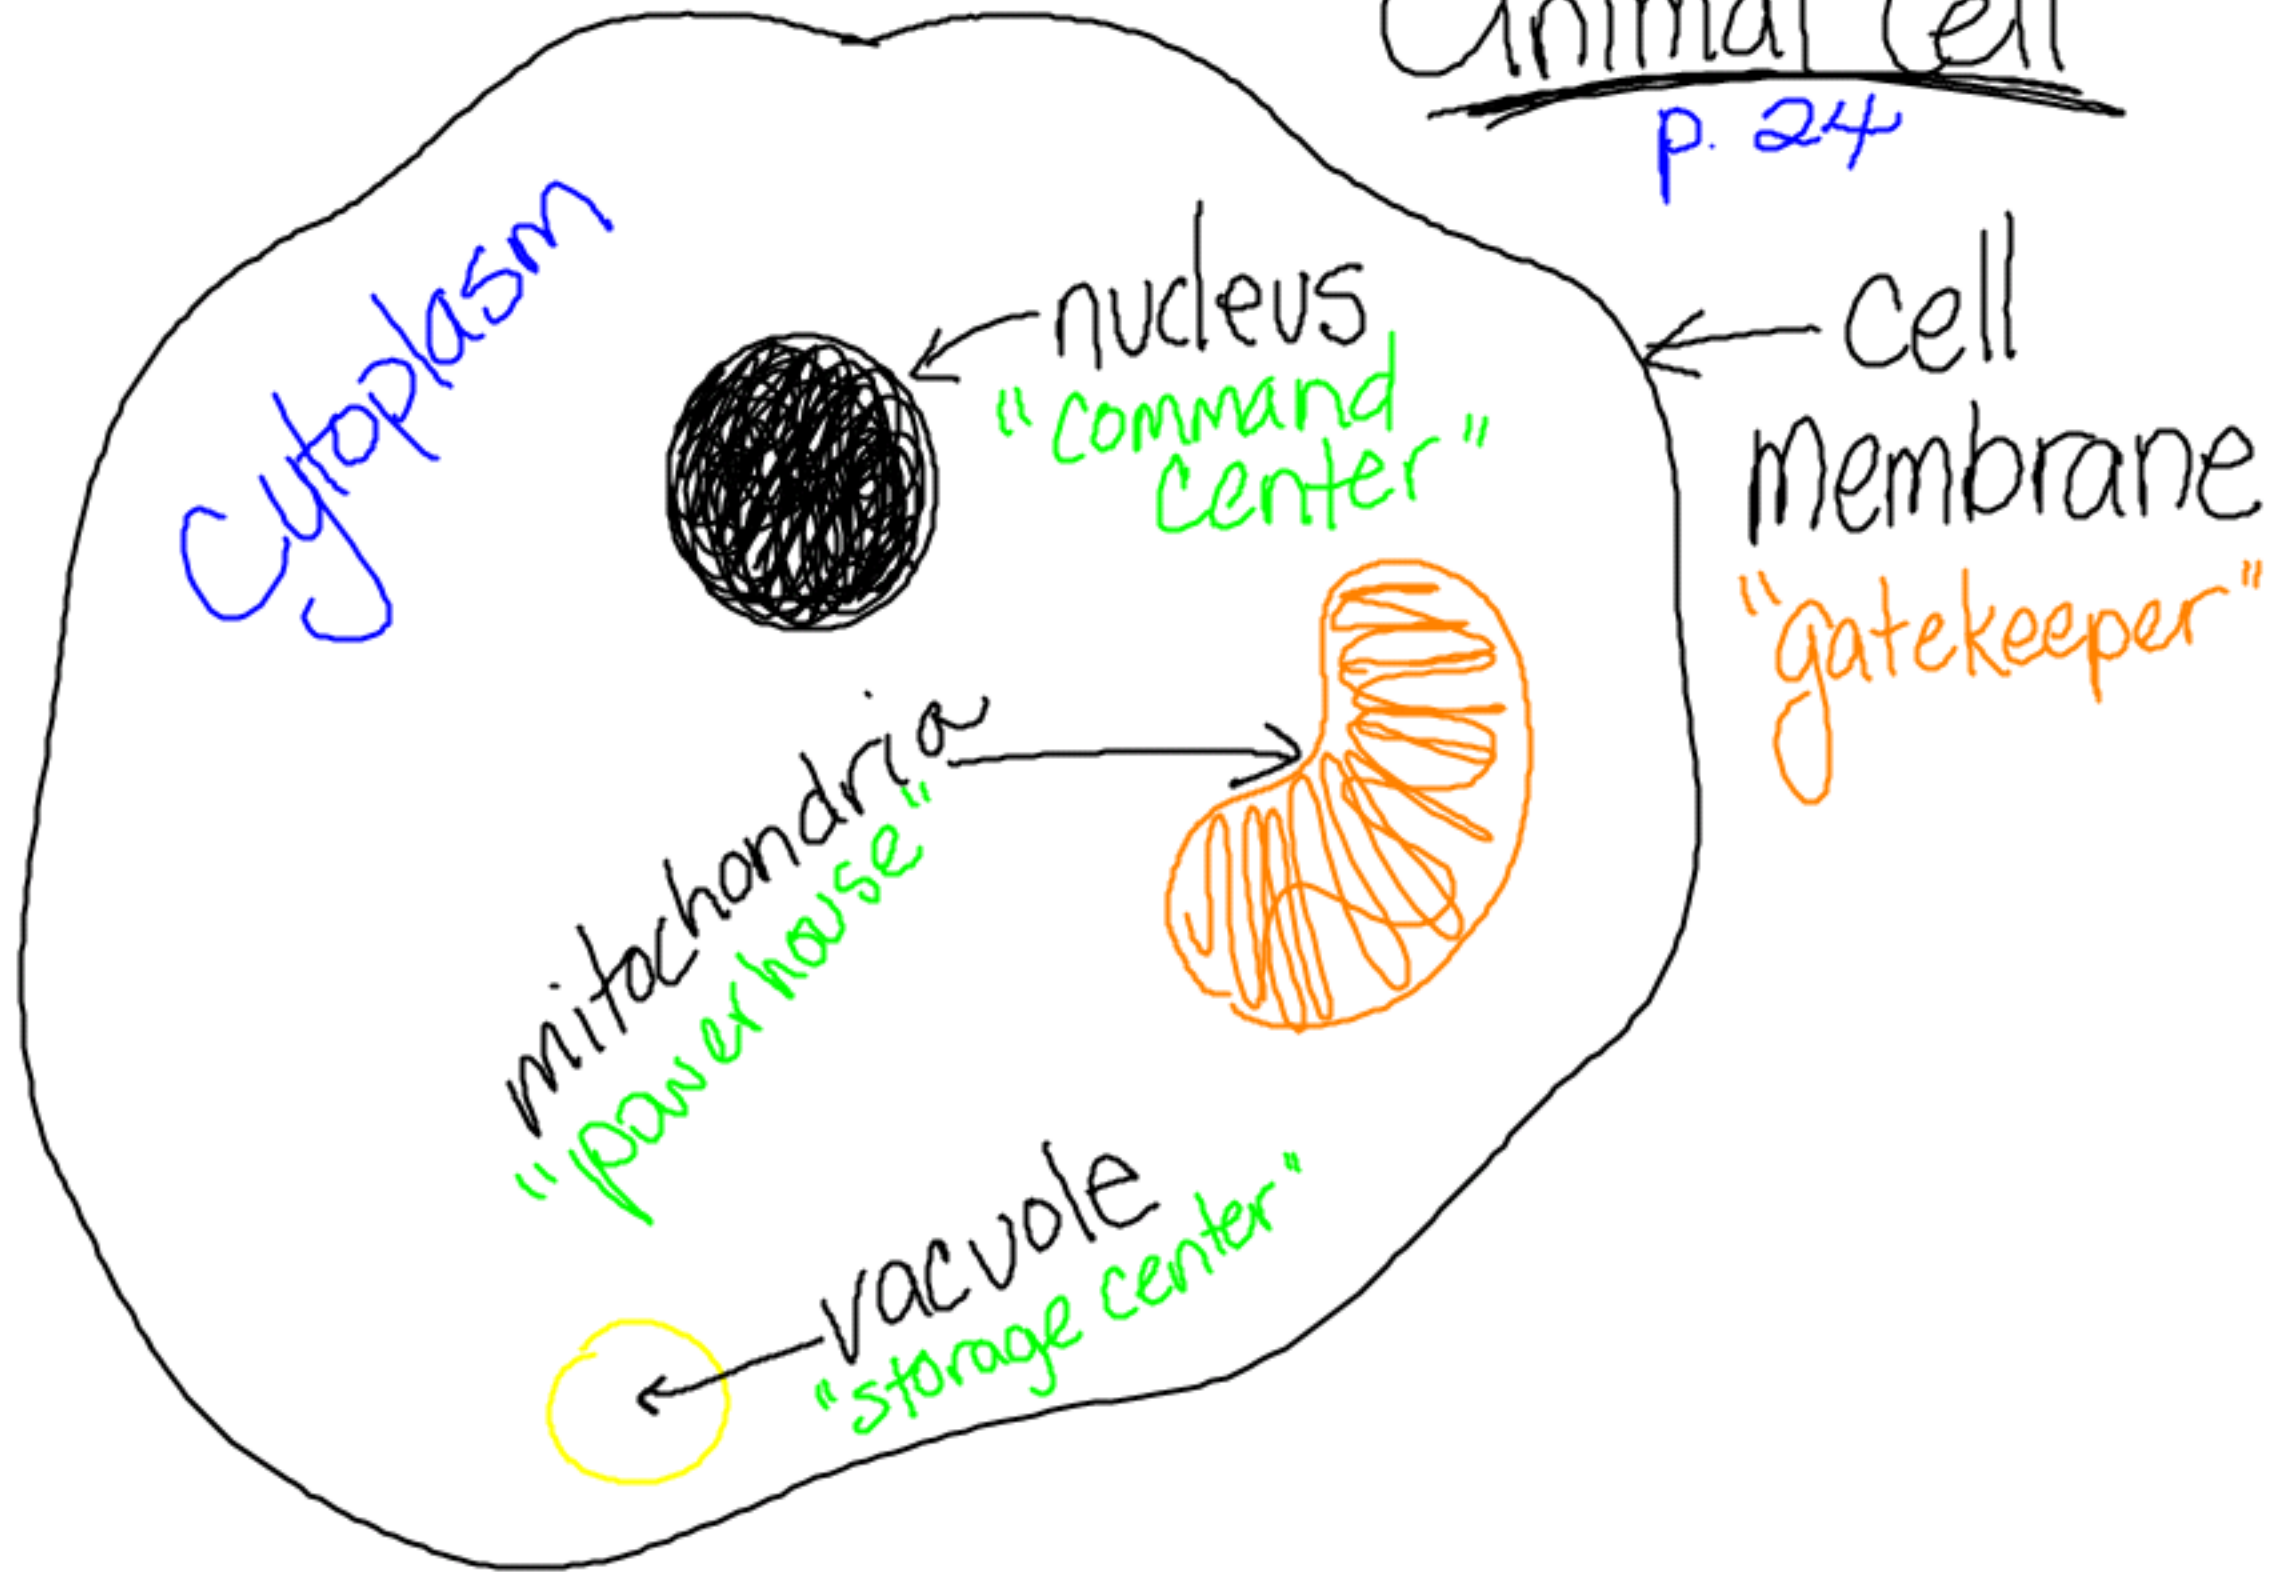 Animal Cell
p. 24
cytoplasm
nucleus
"command
center"
cell
membrane
"gatekeeper"
mitochondria
"powerhouse"
vacuole
"storage center"